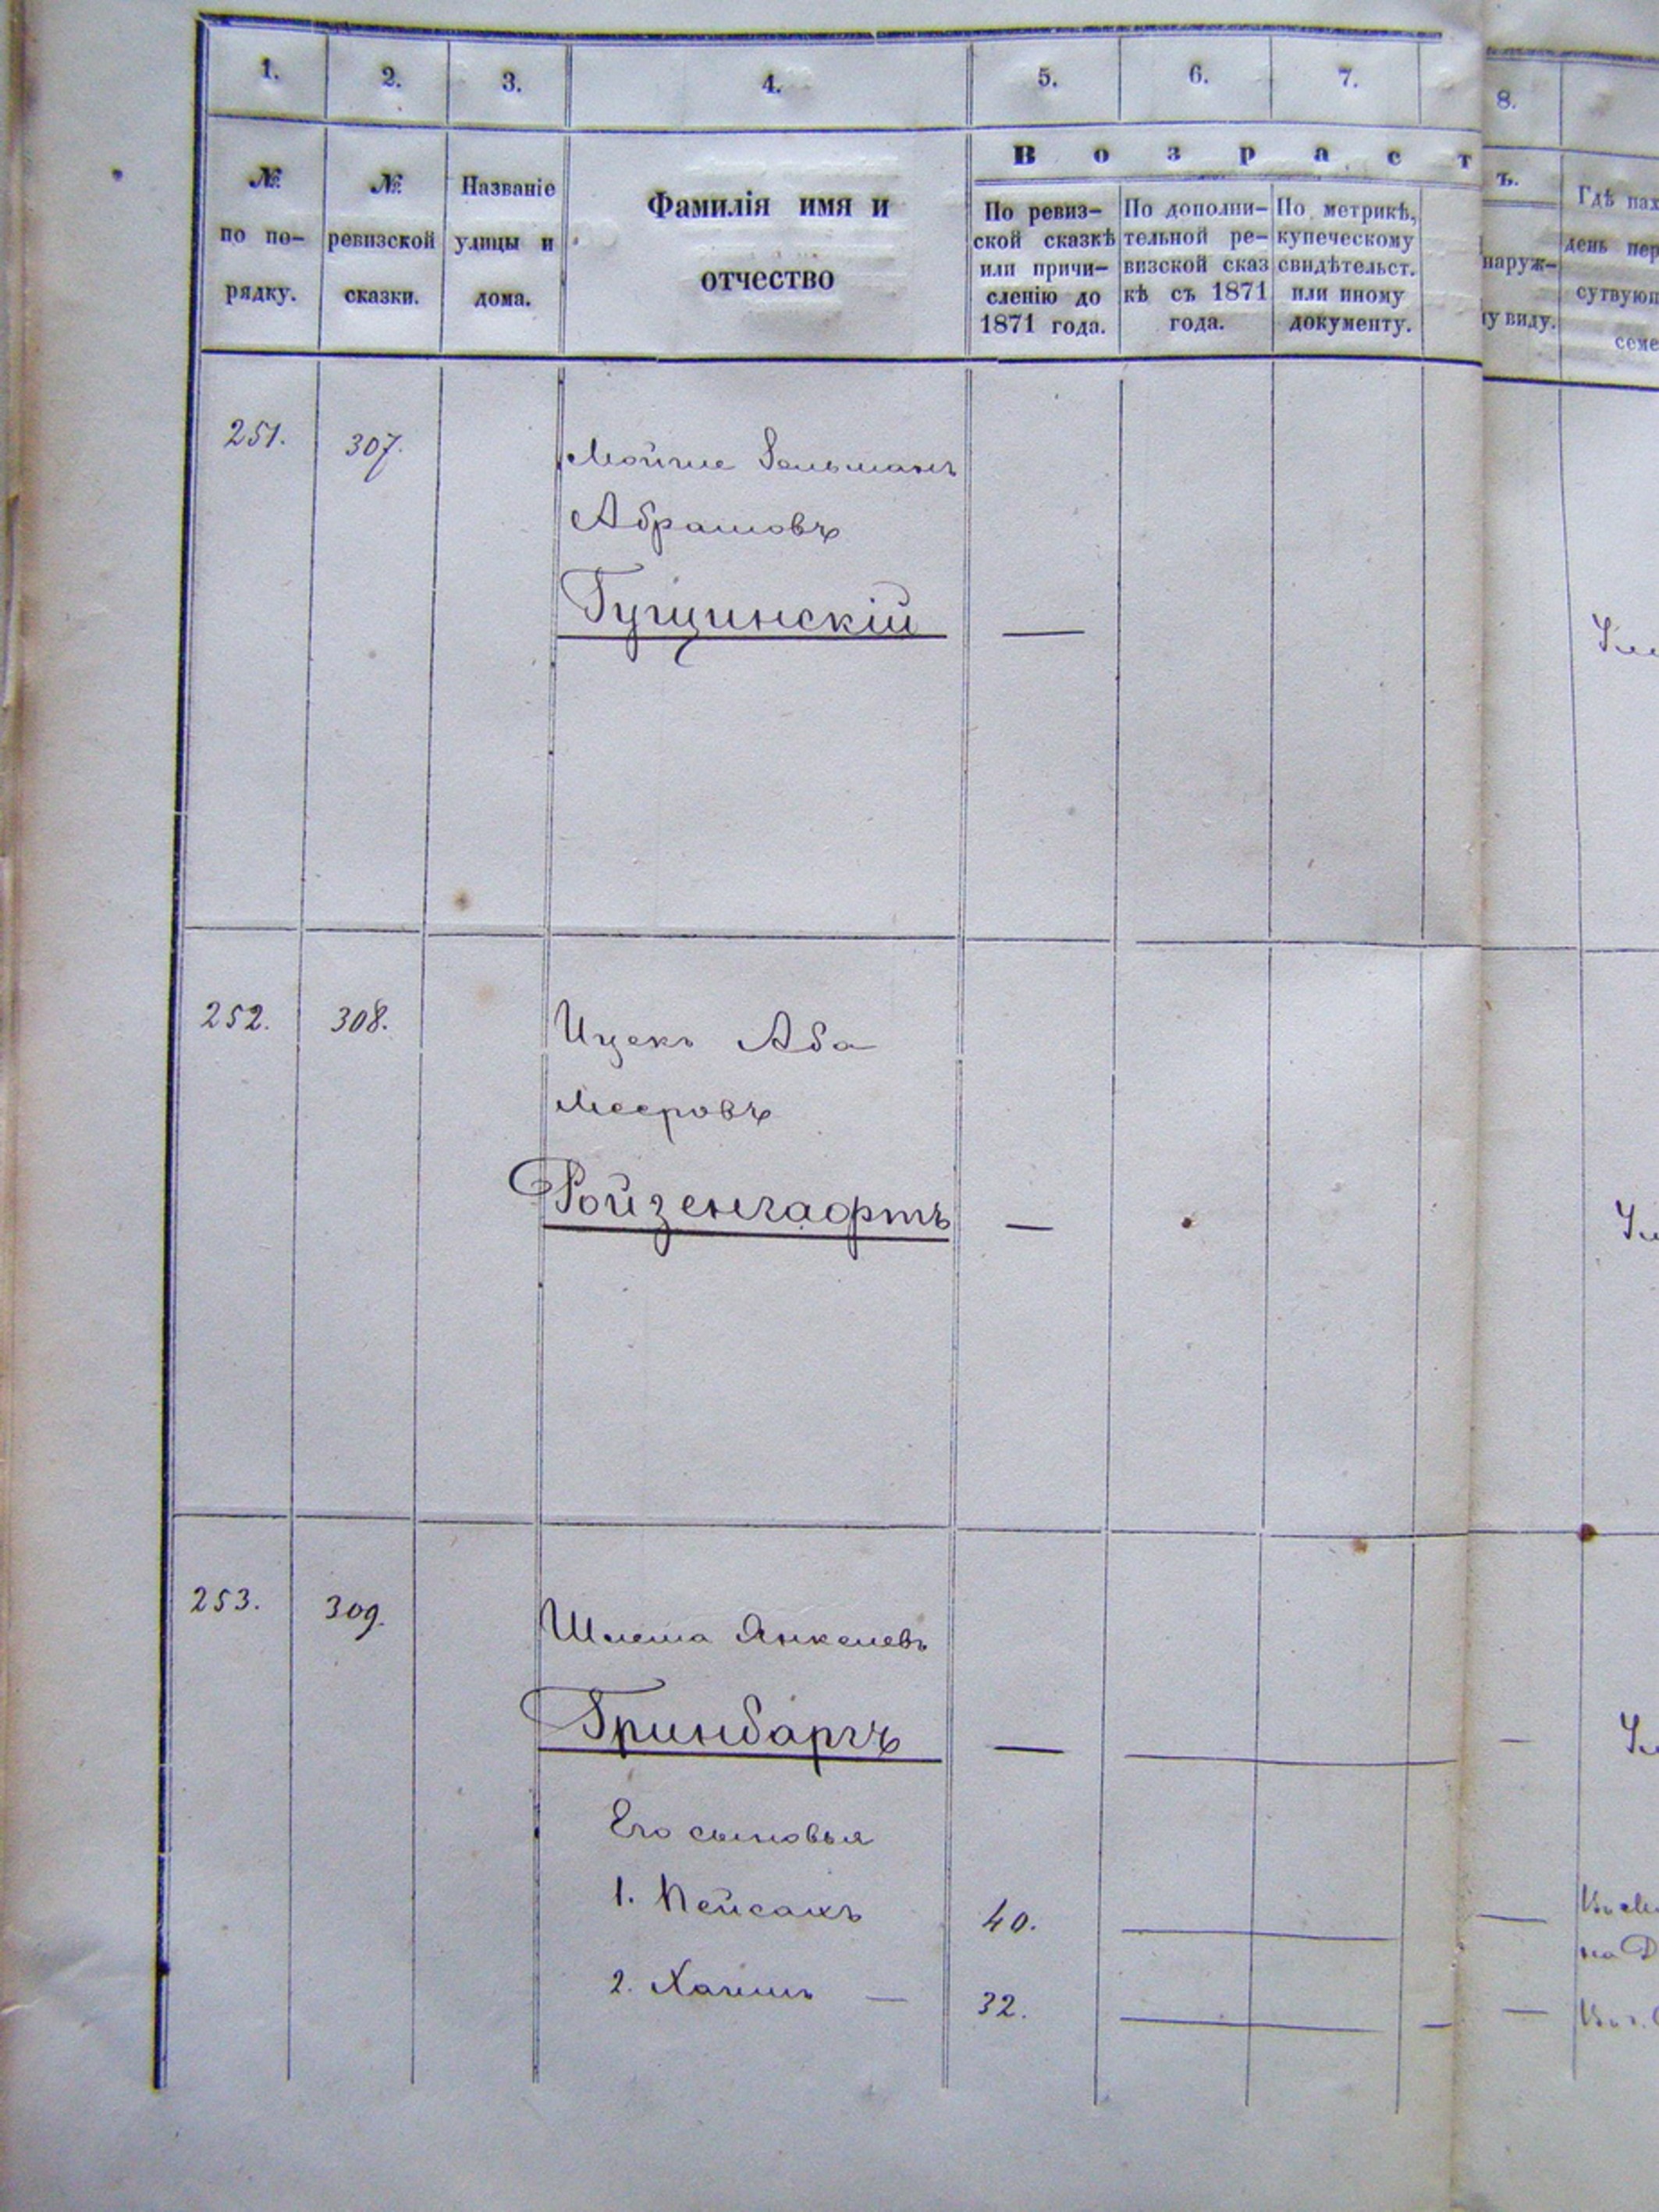 1. 2. 3. 4. 5. 6. 7. 8.
В о з р а с т ъ.
№ по по- рядку.
№ ревизской сказки.
Названіе улицы и дома.
Фамилія имя и
отчество
По ревиз-
ской сказкѣ
или причи-
сленію до
1871 года.
По дополни-
тельной ре-
визской сказ
кѣ съ 1871
года.
По метрикѣ,
купеческому
свидѣтельст.
или иному
документу.
наруж-
у виду.
Гдѣ нах
день пер
сутвую
семе
251. 307. Мойше Зельманъ
Абрамовъ
Гущинскій —
252. 308. Ицекъ Аба
Мееровъ
Ройзенгафтъ —
253. 309. Шлема Янкелевъ
Гринбаргъ —
Его сыновья
1. Пейсахъ 40.
2. Хаимъ — 32.